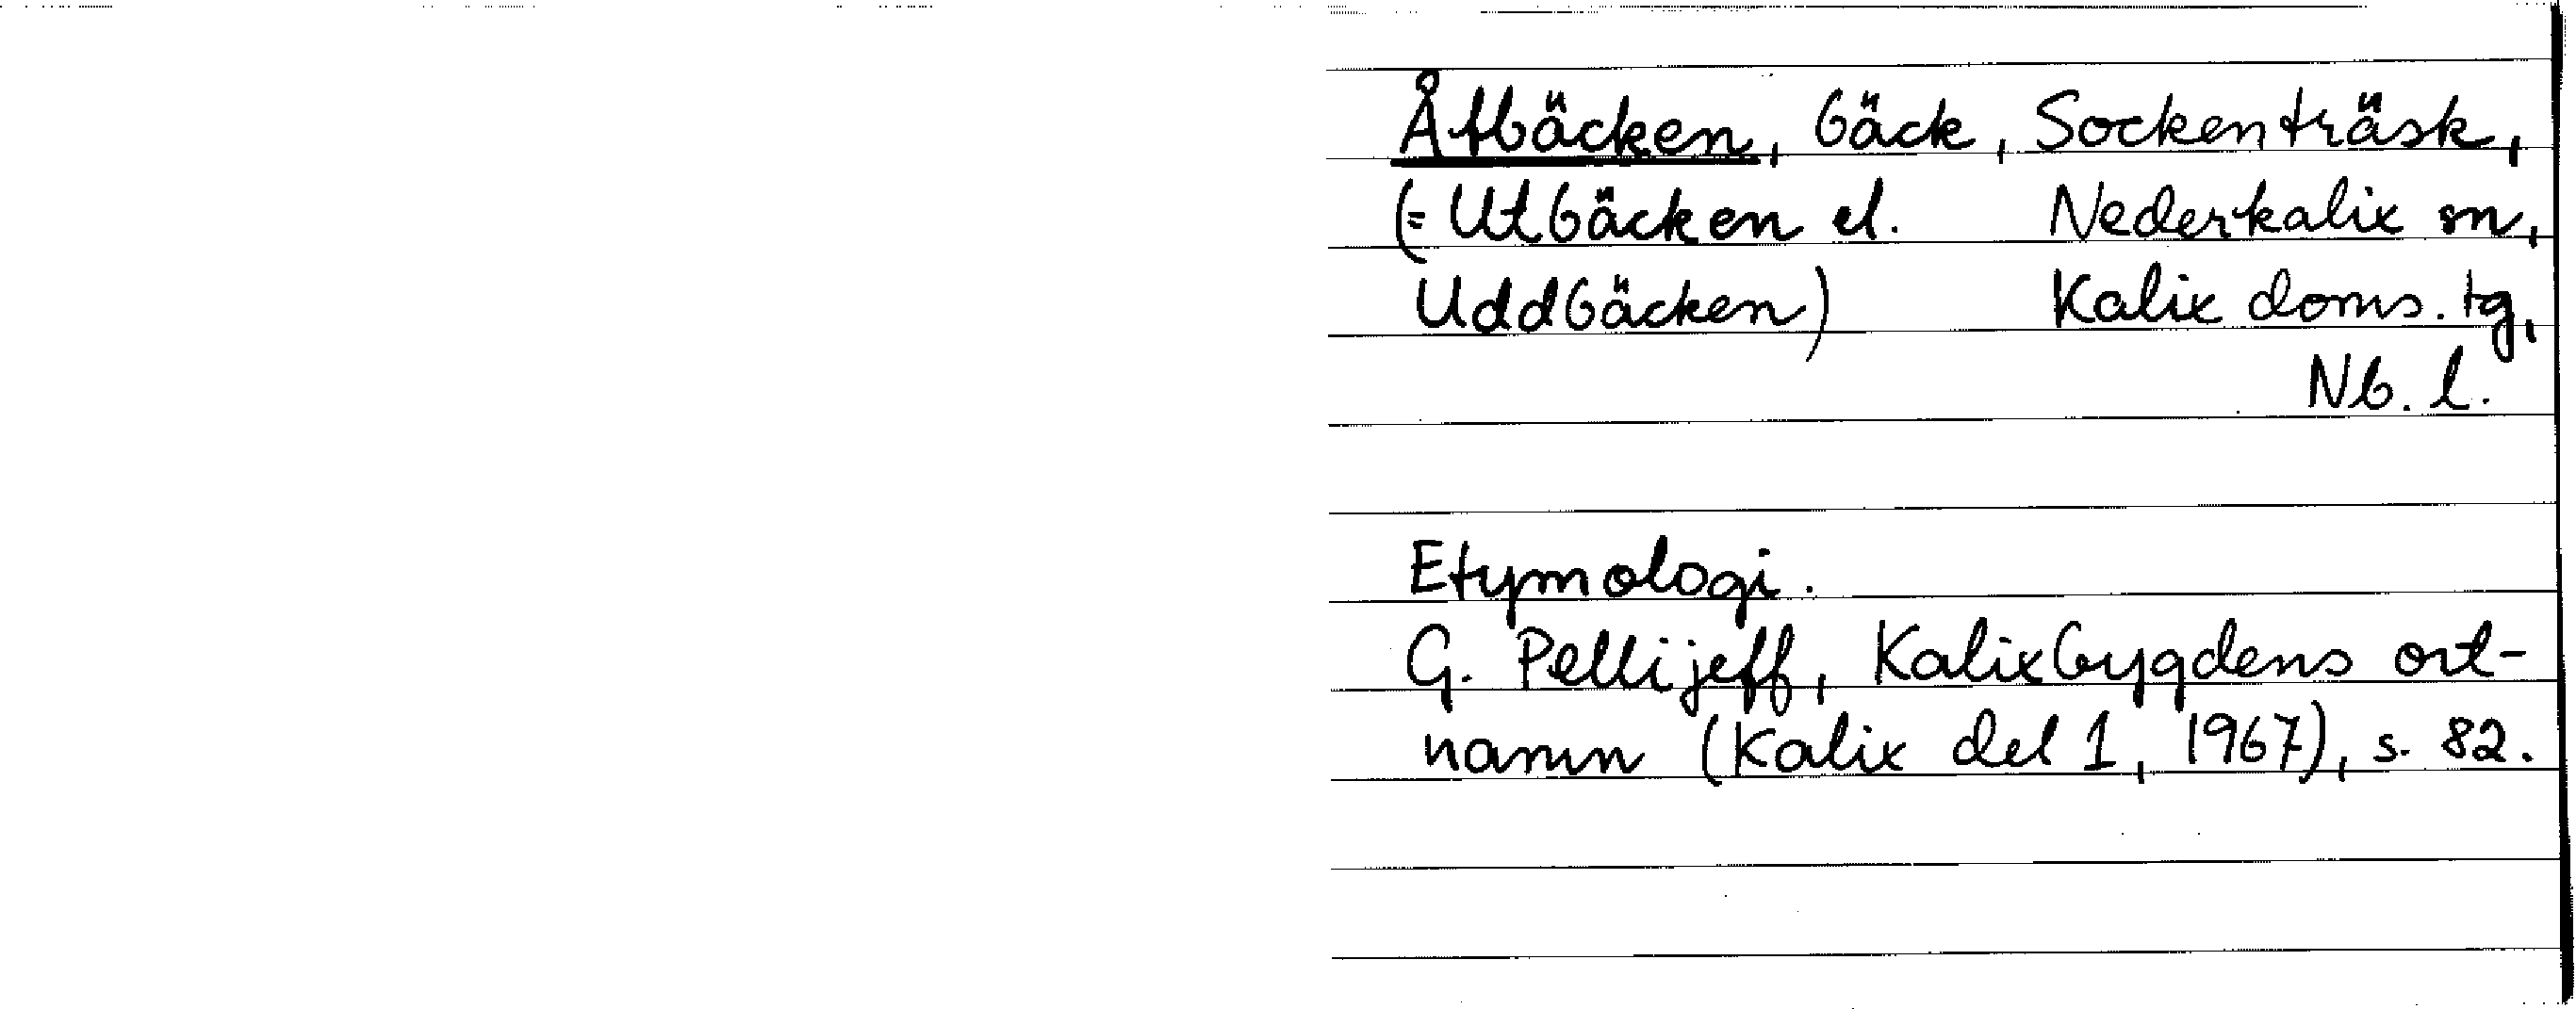 Åtbäcken, bäck, Sockenträsk,
(= Utbäcken el. Nederkalix sn,
Uddbäcken) Kalix doms. tg,
Nb. l.
Etymologi.
G. Pellijeff, Kalixbygdens ort-
namn (Kalix del 1, 1967), s. 82.